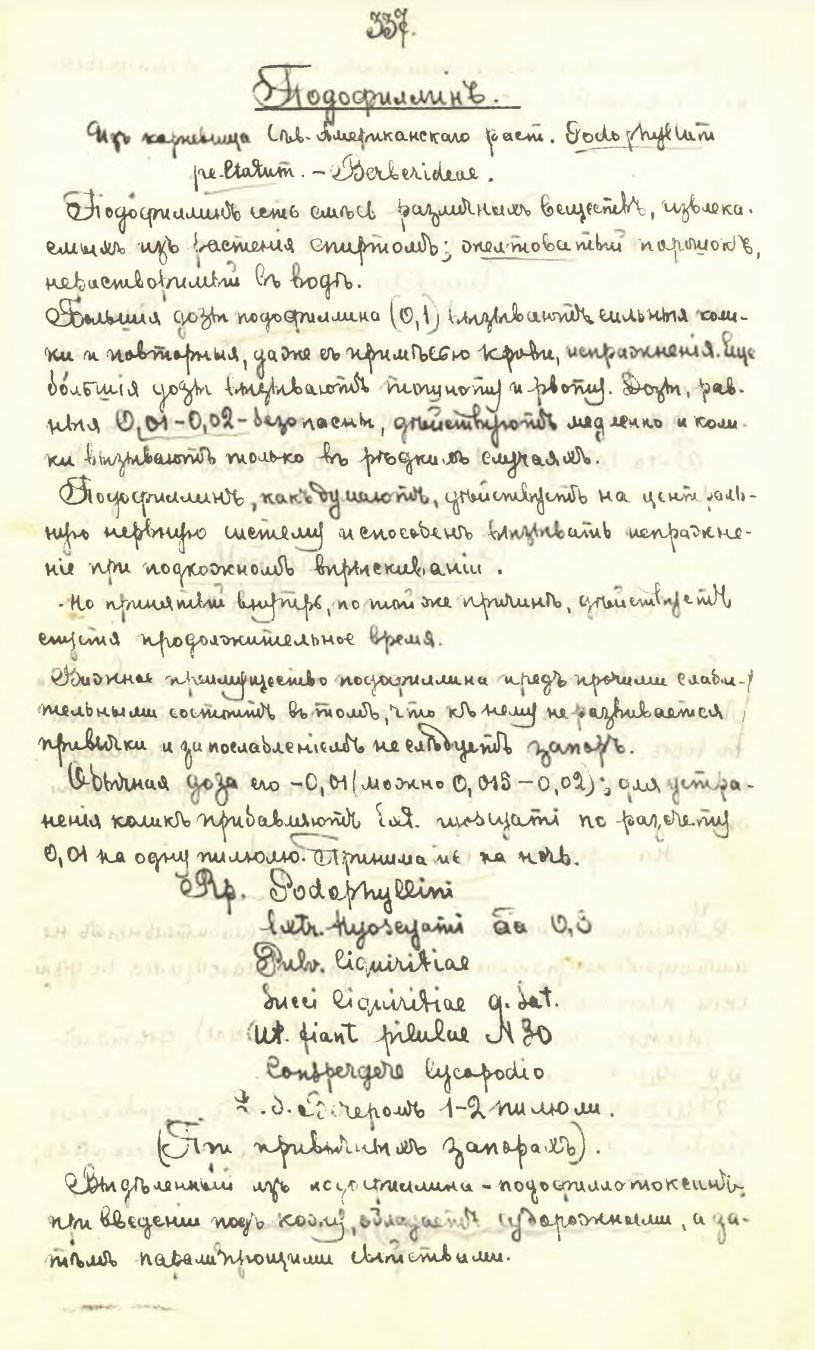 337.
Подофиллинъ.
Изъ корневища Сѣв. Американскаго раст. Podophyllum
peltatum. – Berberideae.
Подофиллинъ есть смѣсь различныхъ веществъ, извлека-
емыхъ изъ растенія спиртомъ; желтоватый порошокъ,
нерастворимый въ водѣ.
Большія дозы подофиллина (0,1) вызываютъ сильныя коли-
ки и повторныя, даже съ примѣсью крови, испражненія. Еще
бо́льшія дозы вызываютъ тошноту и рвоту. Дозы, рав-
ныя 0,01–0,02 – безопасны, дѣйствуютъ медленно и коли-
ки вызываютъ только въ рѣдкихъ случаяхъ.
Подофиллинъ, какъ думаютъ, дѣйствуетъ на централь-
ную нервную систему и способенъ вызывать испражне-
ніе при подкожномъ впрыскиваніи.
Но принятый внутрь, по той же причинѣ, дѣйствуетъ
спустя продолжительное время.
Важное преимущество подофиллина предъ прочими слаби-
тельными состоитъ въ томъ, что къ нему не развивается
привычки и за послабленіемъ не слѣдуетъ запоръ.
Обычная доза его – 0,01 (можно 0,015 – 0,02); для устра-
ненія коликъ прибавляютъ Ext. Hyoscyami по разсчету
0,01 на одну пилюлю. Приниманіе на ночь.
Rp. Podophyllini
Extr. Hyoscyami āā 0,3
Pulv. liquiritiae
Succi liquiritiae q. Sat.
Ut. fiant pilulae N 30
Conspergere lycopodio
D. S. Вечеромъ 1–2 пилюли.
(При привычныхъ запорахъ).
Выдѣленный изъ подофиллина – подофиллотоксинъ,
при введеніи подъ кожу, обладаетъ судорожными, а за-
тѣмъ парализующими свойствами.